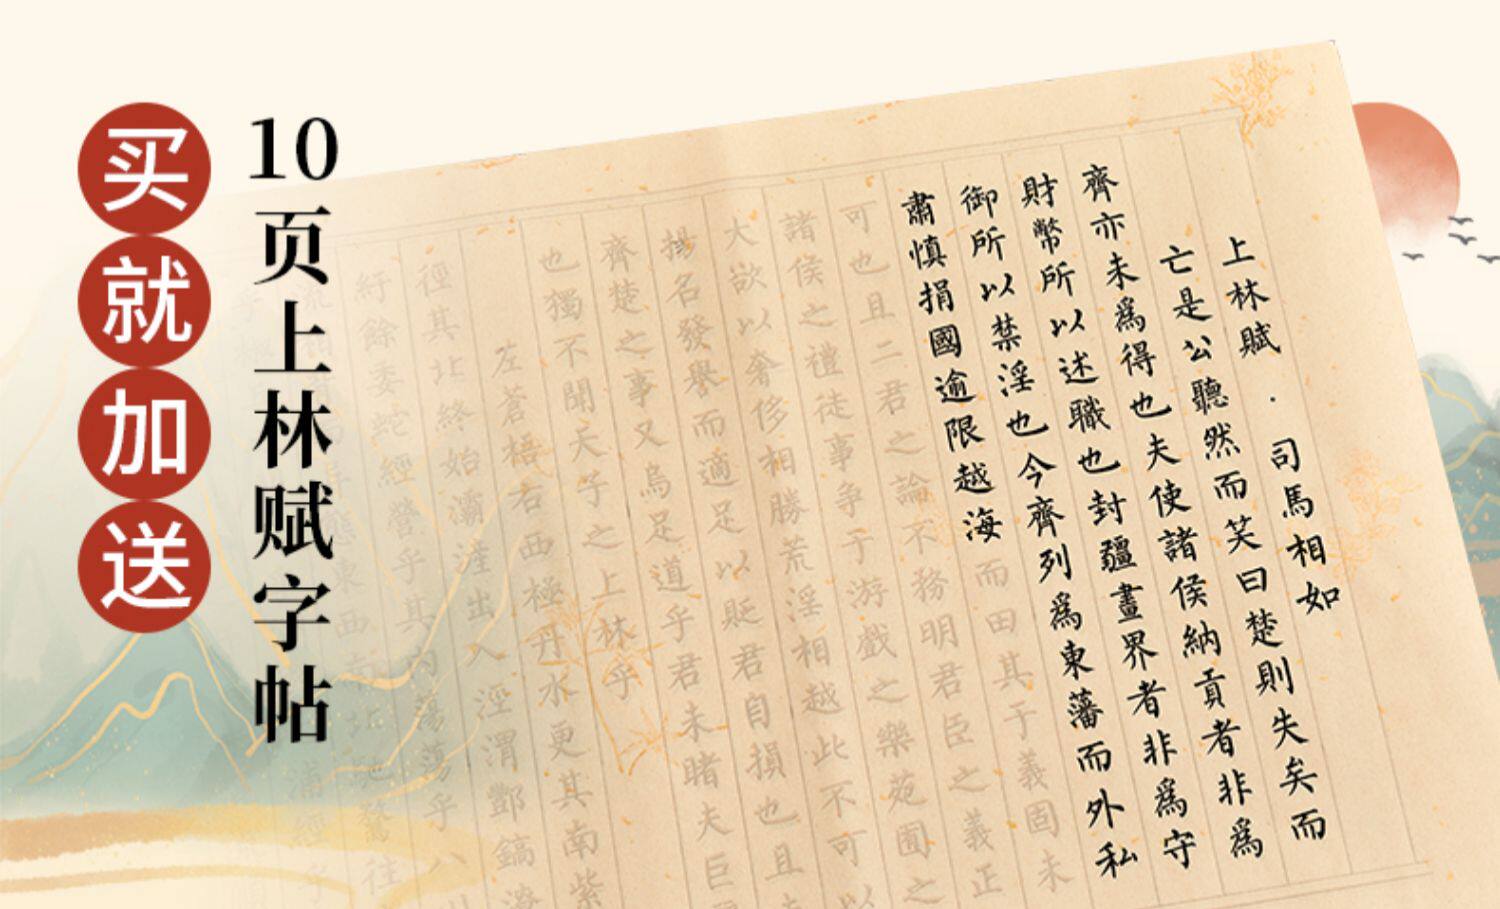 买就加送
10页上林赋字帖
上林賦·司馬相如
亡是公聽然而笑曰楚則失矣而
齊亦未爲得也夫使諸侯納貢者非爲
財幣所以述職也封疆畫界者非爲守
御所以禁淫也今齊列爲東藩而外私
肅慎捐國逾限越海而田其于義固未
可也且二君之論不務明君臣之義正
諸侯之禮徒事争于游戲之樂苑囿之
大欲以奢侈相勝荒淫相越此不可以
揚名發譽而適足以貶君自損也且
齊楚之事又烏足道乎君未睹夫巨
也獨不聞天子之上林乎
左蒼梧右西極丹水更其南紫
徑其北終始灞滻出入涇渭酆鎬潦
紆餘委蛇經營乎其内蕩蕩乎八
東西南北馳騖往